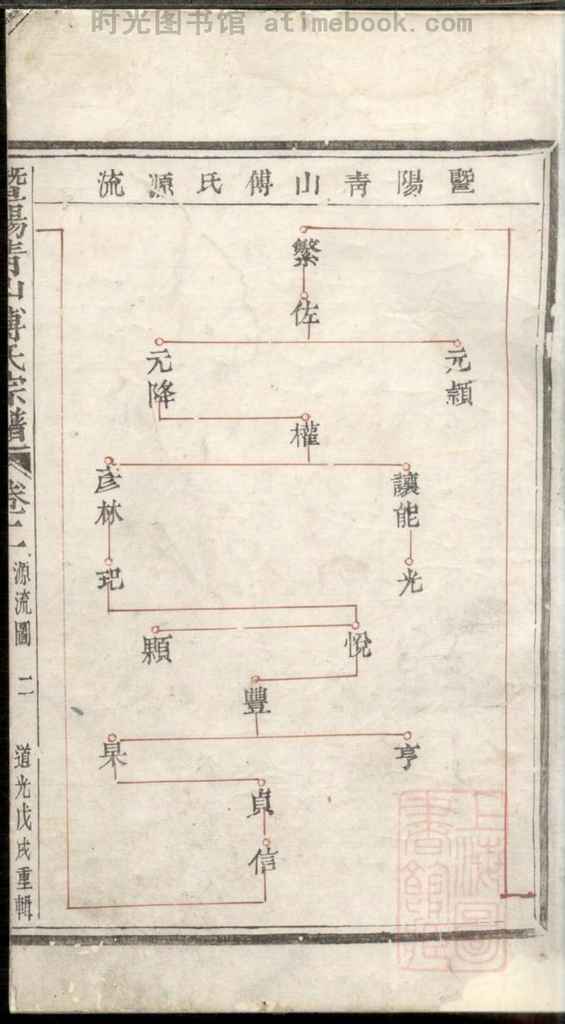 时光图书馆 atimebook.com
暨陽青山傅氏源流
繁
佐
元穎
元降
權
讓能
彥林
光
玘
悅
顆
豐
亨
杲
貞
信
暨陽青山傅氏宗譜
卷二
源流圖
二
道光戊戌重輯